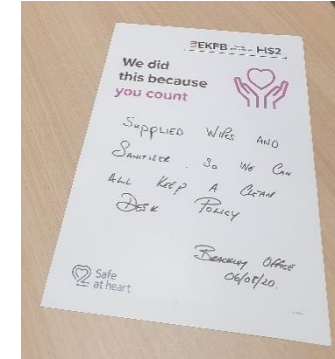 EKFB HS2
We did
this because
you count
SUPPLIED WIPES AND
SANITISER. SO WE CAN
ALL KEEP A CLEAN
DESK POLICY
BRACKLEY OFFICE
06/08/20.
Safe
at heart